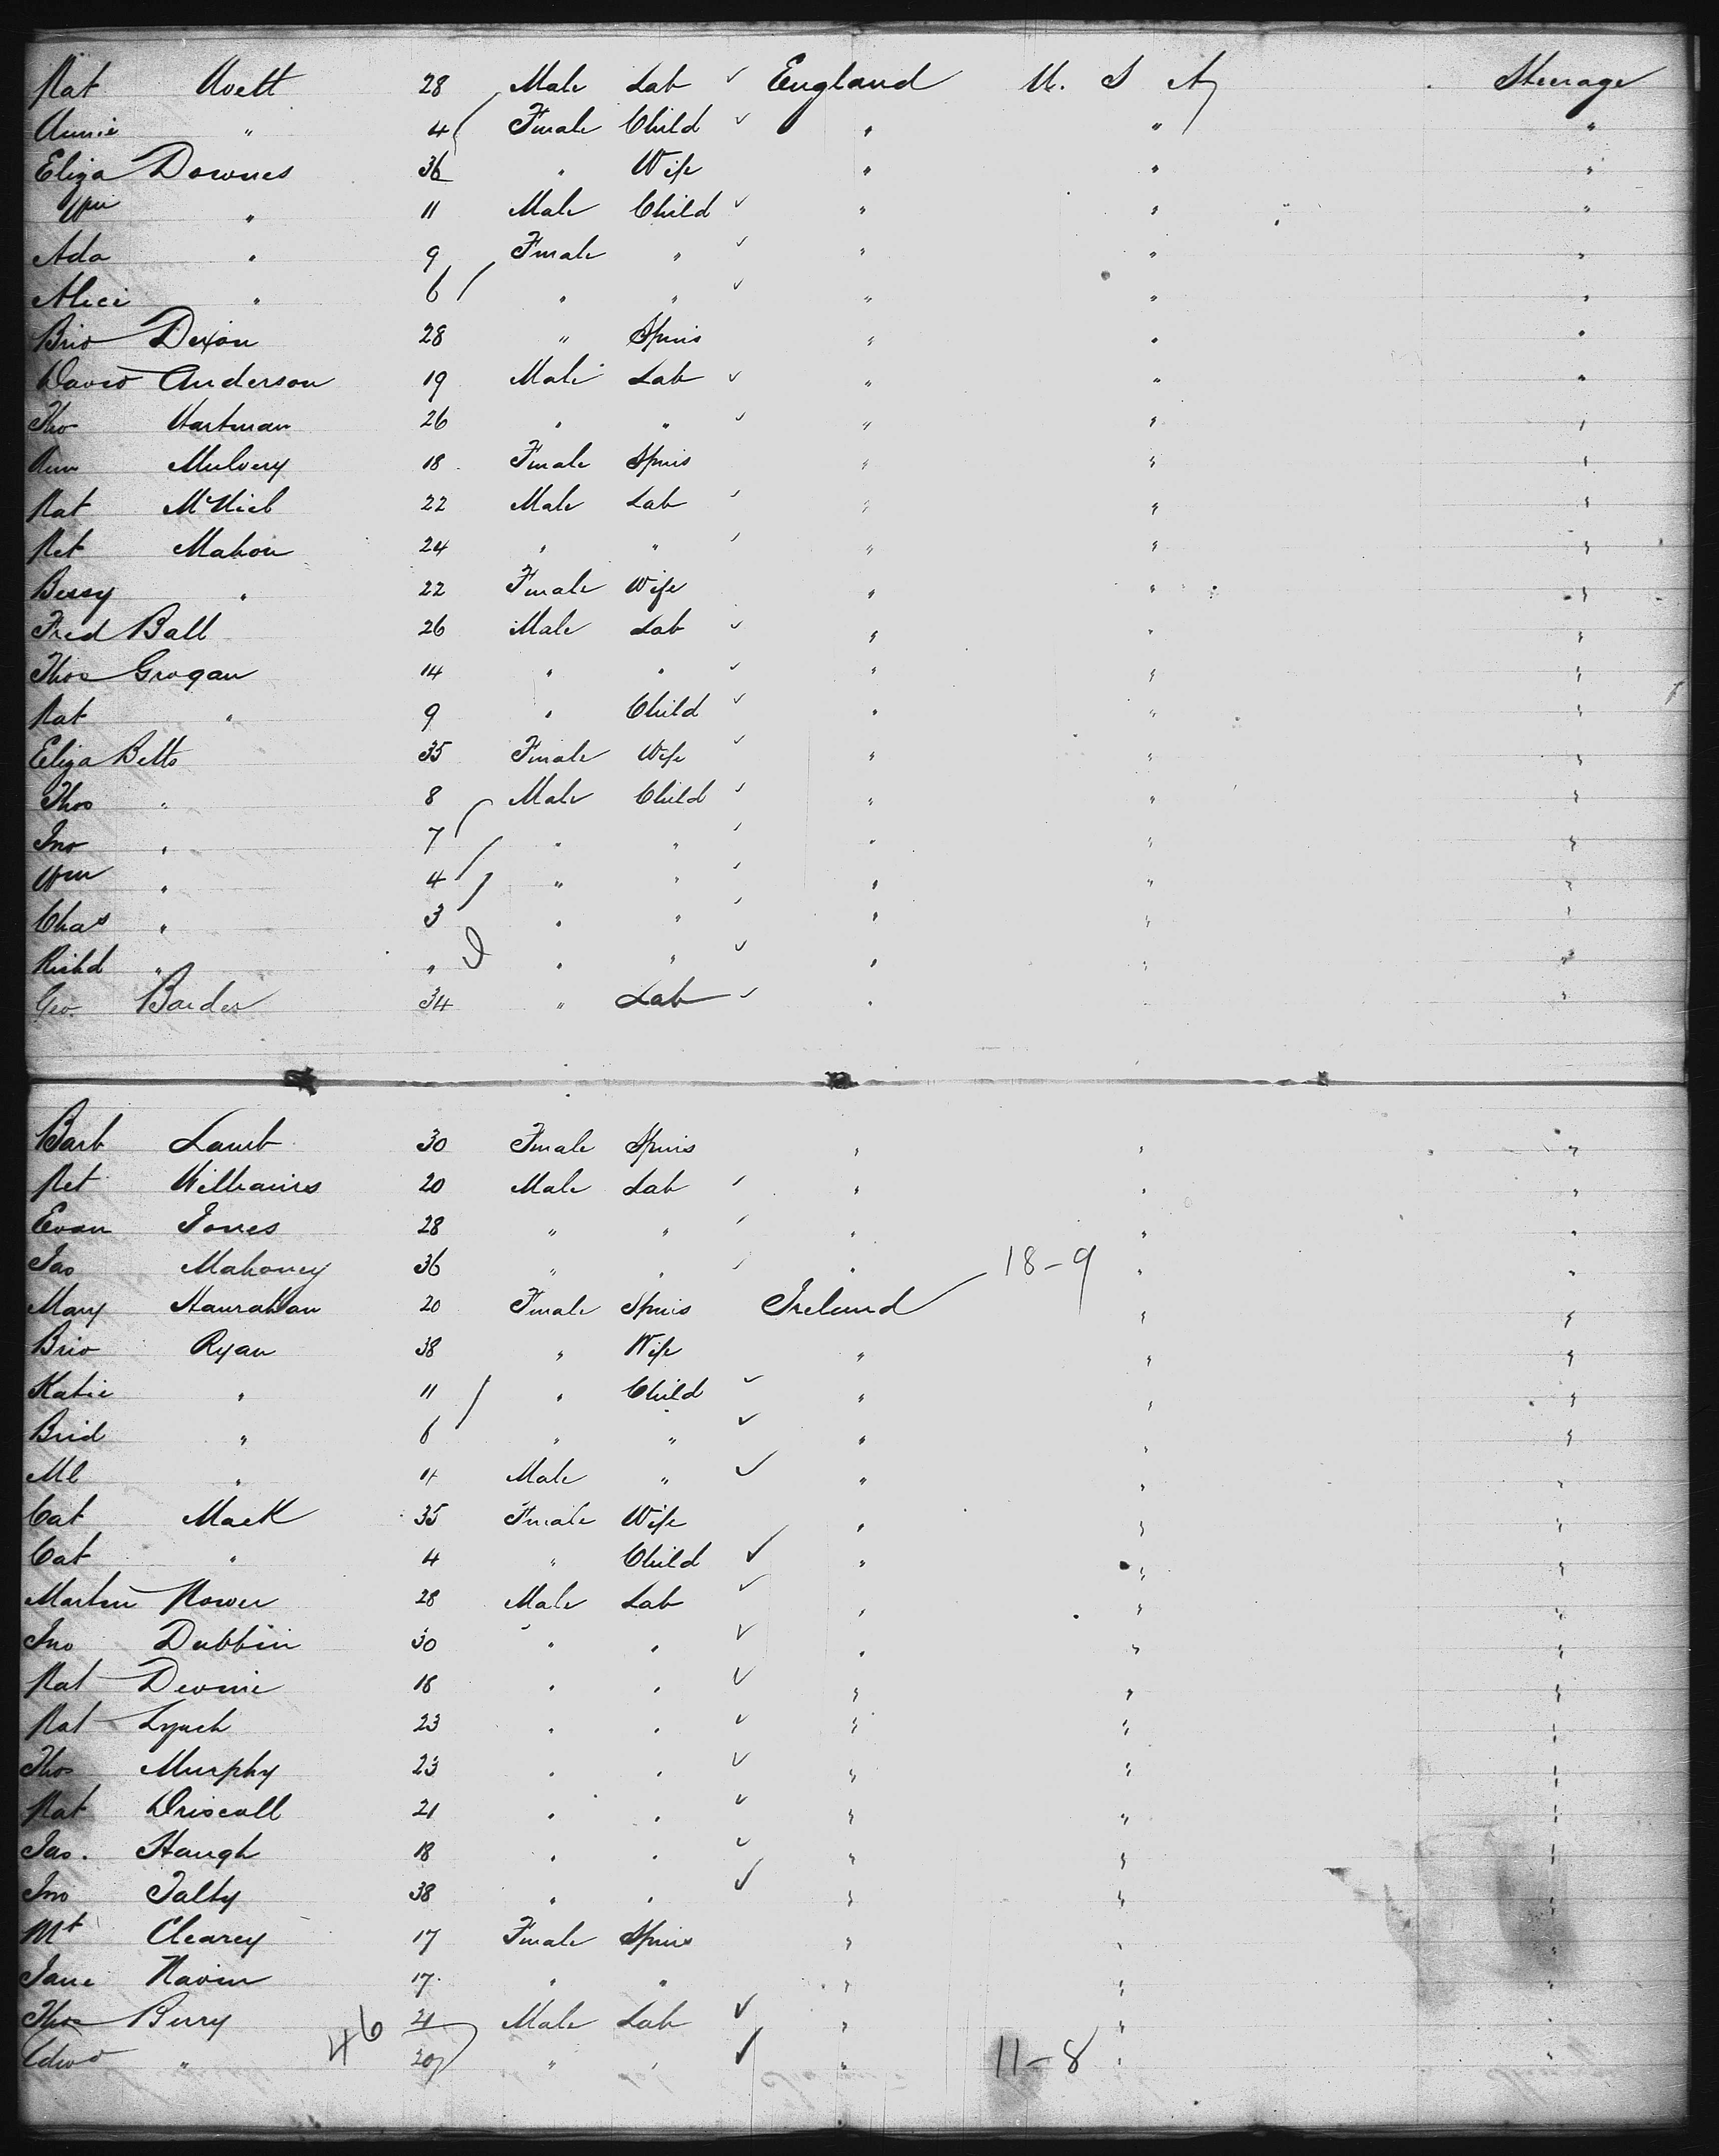 Pat 28 Male Lab ✓ England U. S. A Steerage
Annie " 4 Female Child ✓ " " "
Eliza Downes 36 " Wife " " "
Wm " 11 Male Child ✓ " " "
Ada " 9 Female " ✓ " " "
Alice " 6 " " ✓ " " "
Brid Dixon 28 " Spins " " "
David Anderson 19 Male Lab ✓ " " "
Tho Hartman 26 " " ✓ " " "
Ann Mulvery 18 Female Spins " " "
Pat McNiel 22 Male Lab ✓ " " "
Pet Mahon 24 " " ✓ " " "
Bessy " 22 Female Wife " " "
Fred Ball 26 Male Lab ✓ " " "
Thos Grogan 14 " " ✓ " " "
Pat " 9 " Child ✓ " " "
Eliza Betts 35 Female Wife ✓ " " "
Thos " 8 Male Child ✓ " " "
Jno " 7 " " ✓ " " "
Wm " 4 " " ✓ " " "
Chas " 3 " " ✓ " " "
Richd " " " " ✓ " " "
Geo 34 " Lab ✓ " " "
Barb Lamb 30 Female Spins " " "
Pet Williams 20 Male Lab ✓ " " "
Evan Jones 28 " " ✓ " " "
Jas Mahoney 36 " " ✓ " 18-9 " "
Mary Hanrahan 20 Female Spins Ireland " "
Brid Ryan 38 " Wife " " "
Katie " 11 " Child ✓ " " "
Brid " 6 " " ✓ " " "
Ml " 4 Male " ✓ " " "
Cat Mack 35 Female Wife " " "
Cat " 4 " Child ✓ " " "
Martin Power 28 Male Lab ✓ " " "
Jno Dubbin 30 " " ✓ " " "
Pat Devine 18 " " ✓ " " "
Pat Lynch 23 " " ✓ " " "
Thos Murphy 23 " " ✓ " " "
Pat Driscoll 21 " " ✓ " " "
Jas. Haugh 18 " " ✓ " " "
Jno Talty 38 " " ✓ " " "
Mt Clearey 17 Female Spins " " "
Jane Navin 17 " " " " "
Thos Berry 21 Male Lab ✓ " " "
Edwd " 46 20 " " ✓ " 11-8 " "